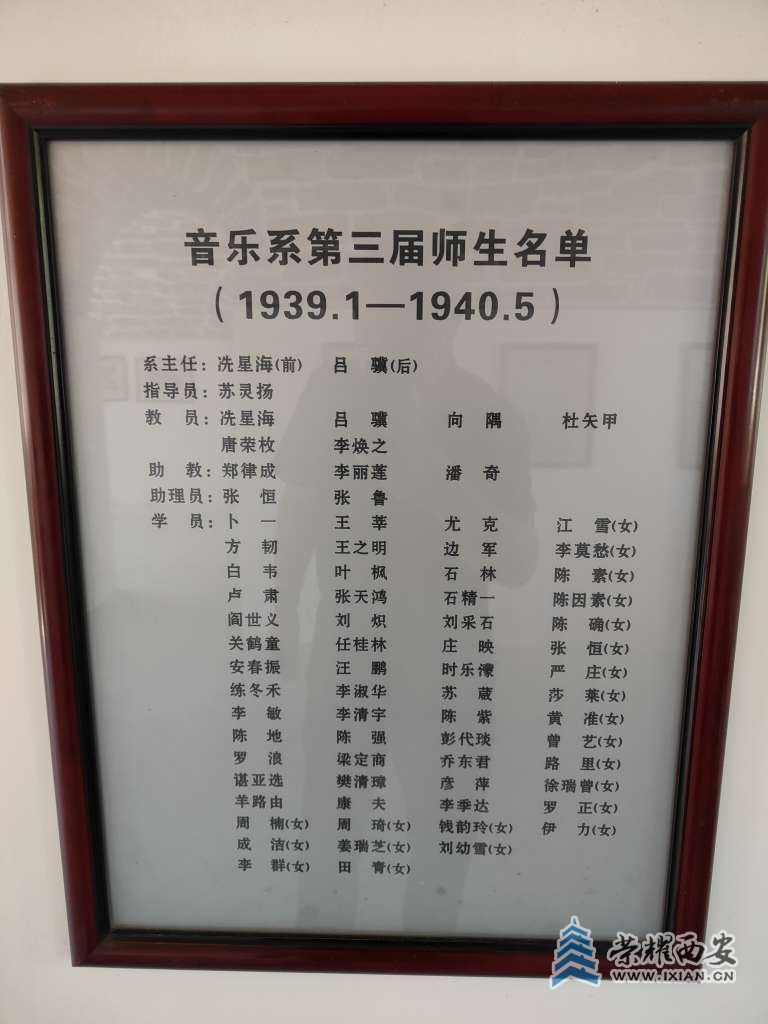 音乐系第三届师生名单
（1939.1—1940.5）
系主任：冼星海(前) 吕 骥(后)
指导员：苏灵扬
教 员：冼星海 吕 骥 向 隅 杜矢甲
唐荣枚 李焕之
助 教：郑律成 李丽莲 潘 奇
助理员：张 恒 张 鲁
学 员：卜 一 王 莘 尤 克 江 雪(女)
方 韧 王之明 边 军 李莫愁(女)
白 韦 叶 枫 石 林 陈 素(女)
卢 肃 张天鸿 石精一 陈因素(女)
阎世义 刘 炽 刘采石 陈 确(女)
关鹤童 任桂林 庄 映 张 恒(女)
安春振 汪 鹏 时乐濛 严 庄(女)
练冬禾 李淑华 苏 蒇 莎 莱(女)
李 敏 李清宇 陈 紫 黄 准(女)
陈 地 陈 强 彭代琰 曾 艺(女)
罗 浪 梁定商 乔东君 路 里(女)
谌亚选 樊清璋 彦 萍 徐瑞曾(女)
羊路由 康 夫 李季达 罗 正(女)
周 楠(女) 周 琦(女) 钱韵玲(女) 伊 力(女)
成 洁(女) 姜瑞芝(女) 刘幼雪(女)
李 群(女) 田 青(女)
荣耀西安
WWW.IXIAN.CN